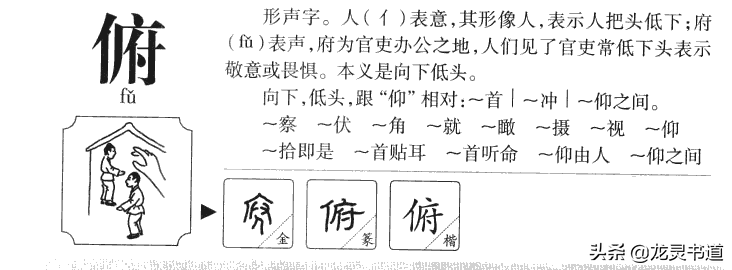 俯
fǔ
形声字。人(亻)表意,其形像人,表示人把头低下;府
(fǔ)表声,府为官吏办公之地,人们见了官吏常低下头表示
敬意或畏惧。本义是向下低头。
向下,低头,跟“仰”相对:～首|～冲|～仰之间。
～察 ～伏 ～角 ～就 ～瞰 ～摄 ～视 ～仰
～拾即是 ～首贴耳 ～首听命 ～仰由人 ～仰之间
金
俯 篆
俯 楷
头条@龙灵书道